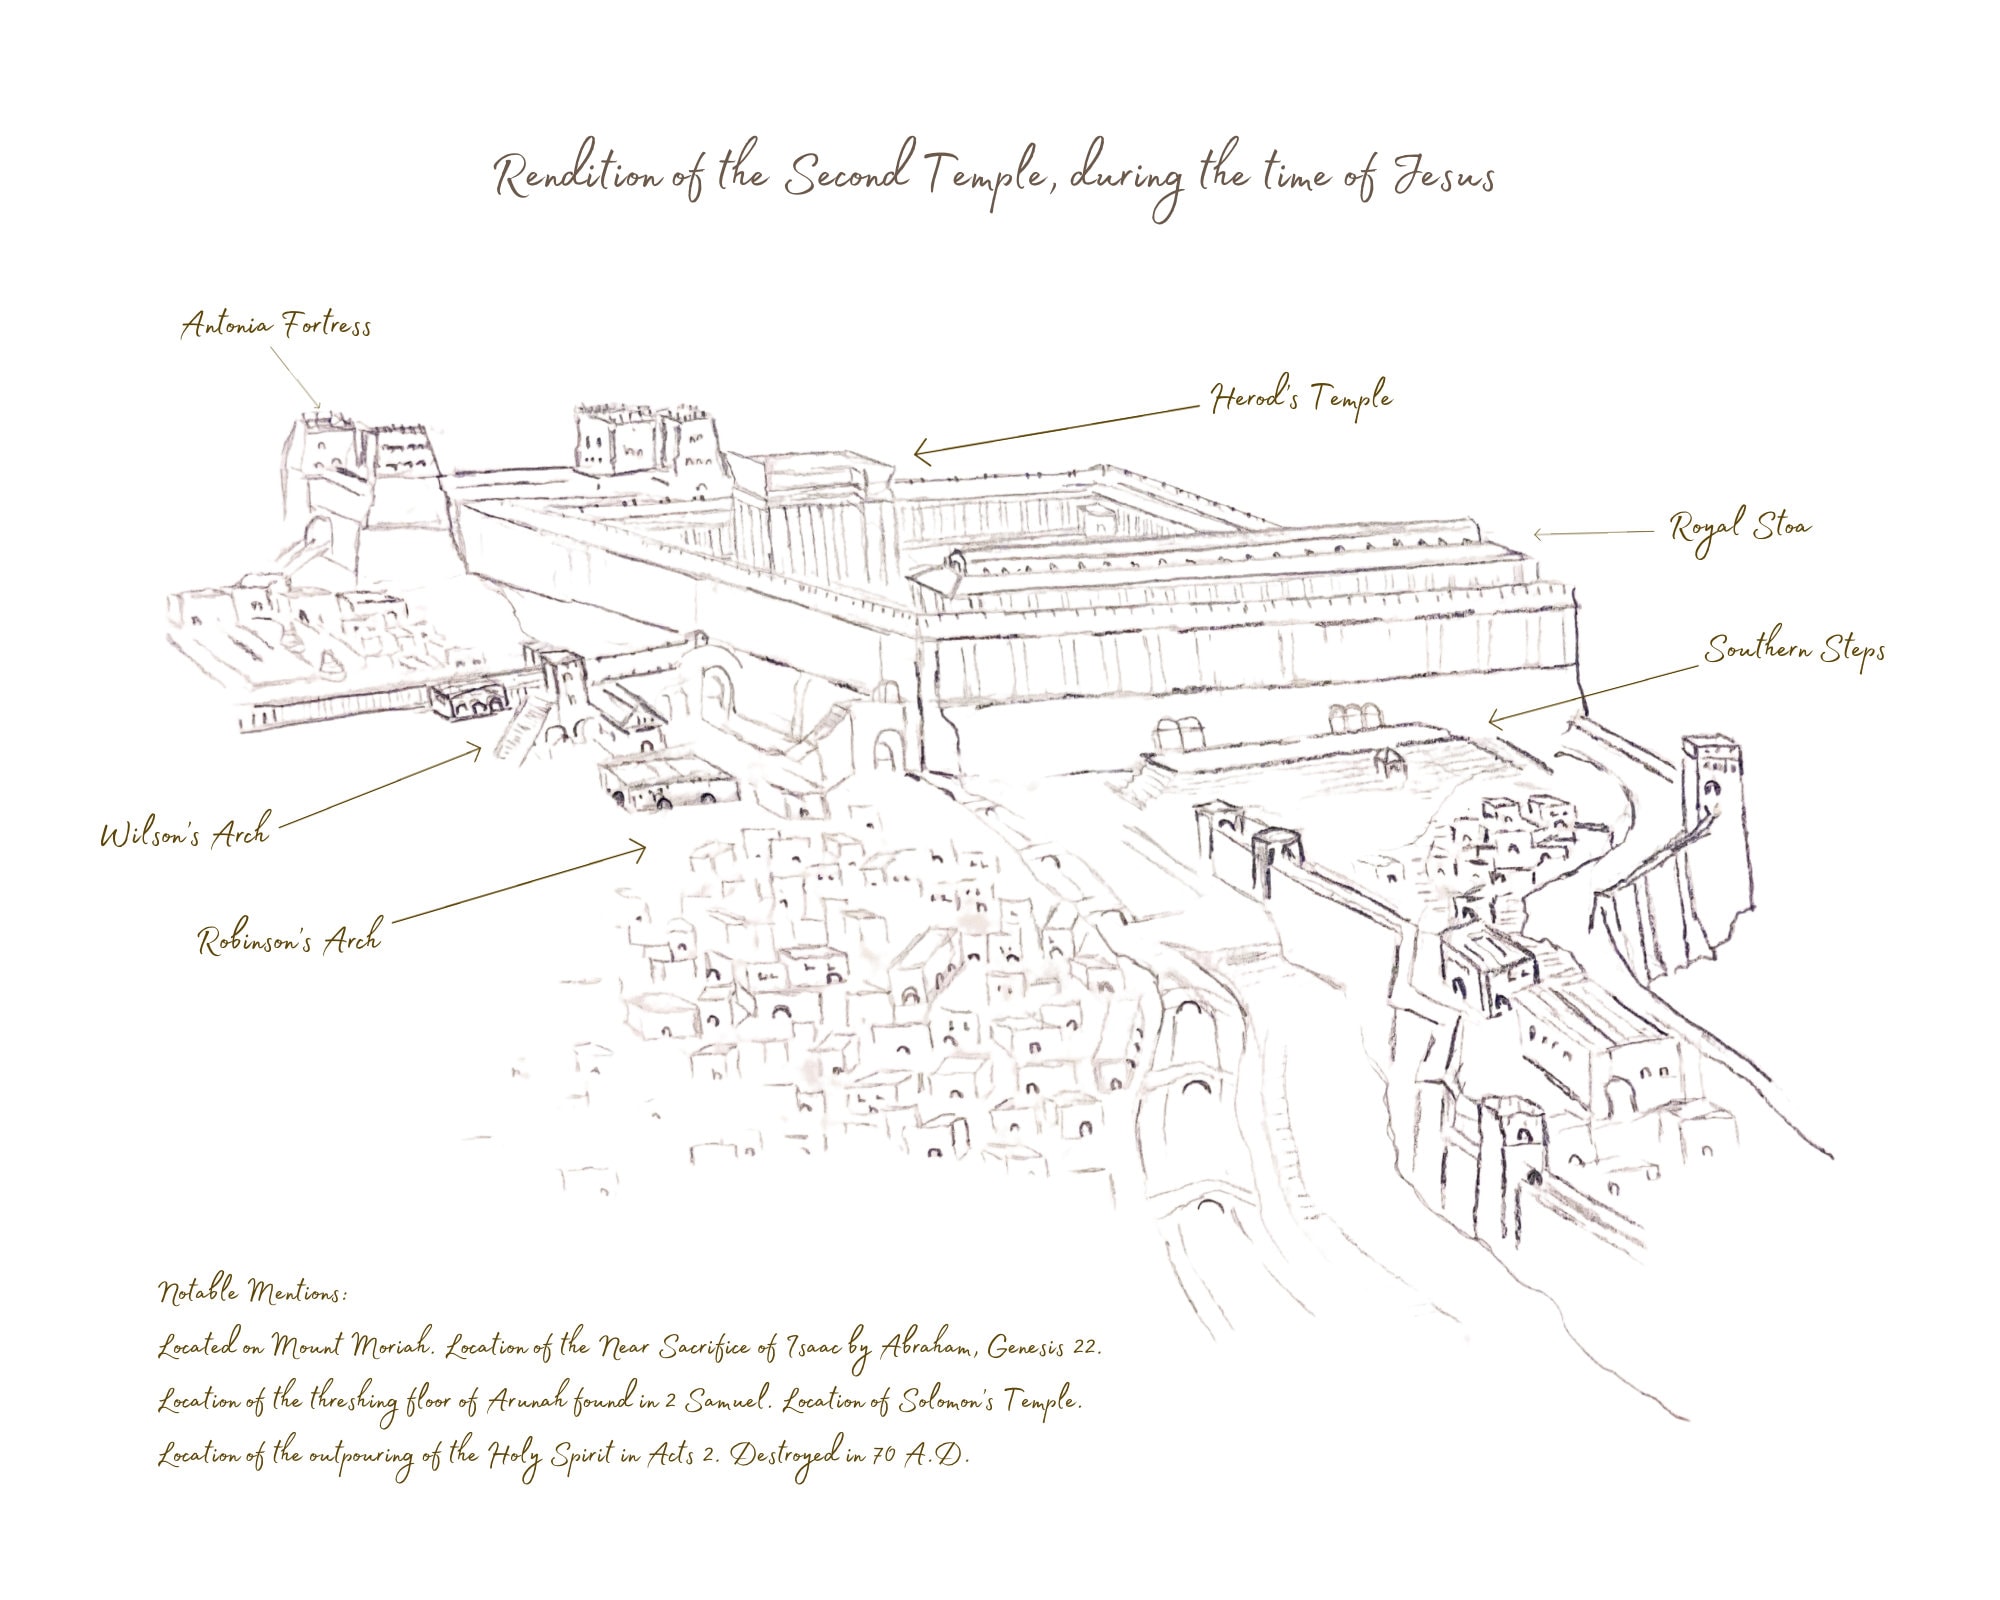 Rendition of the Second Temple, during the time of Jesus
Antonia Fortress
Herod's Temple
Royal Stoa
Southern Steps
Wilson's Arch
Robinson's Arch
Notable Mentions:
Located on Mount Moriah. Location of the Near Sacrifice of Isaac by Abraham, Genesis 22.
Location of the threshing floor of Arunah found in 2 Samuel. Location of Solomon's Temple.
Location of the outpouring of the Holy Spirit in Acts 2. Destroyed in 70 A.D.